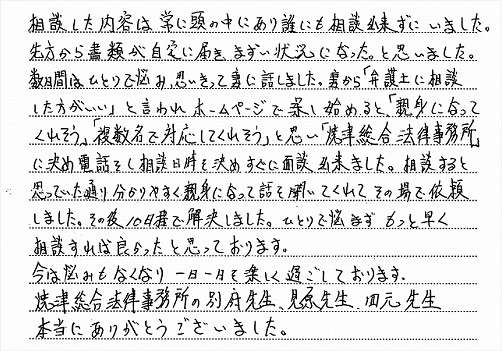 相談した内容は常に頭の中にあり誰にも相談出来ずにいました。
先方から書類が自宅に届きまずい状況になった。と思いました。
数日間はひとりで悩み、思いきって妻に話しました。妻から「弁護士に相談
した方がいい」と言われホームページで探し始めると、「親身になって
くれそう」「複数名で対応してくれそう」と思い「焼津総合法律事務所」
に決め電話をし相談日時を決めすぐに面談出来ました。相談すると
思っていた通り分かりやすく親身になって話を聞いてくれてその場で依頼
しました。その後10日程で解決しました。ひとりで悩まずもっと早く
相談すれば良かったと思っております。
今は悩みもなくなり一日一日を楽しく過ごしております。
焼津総合法律事務所の別府先生、見原先生、田元先生
本当にありがとうございました。